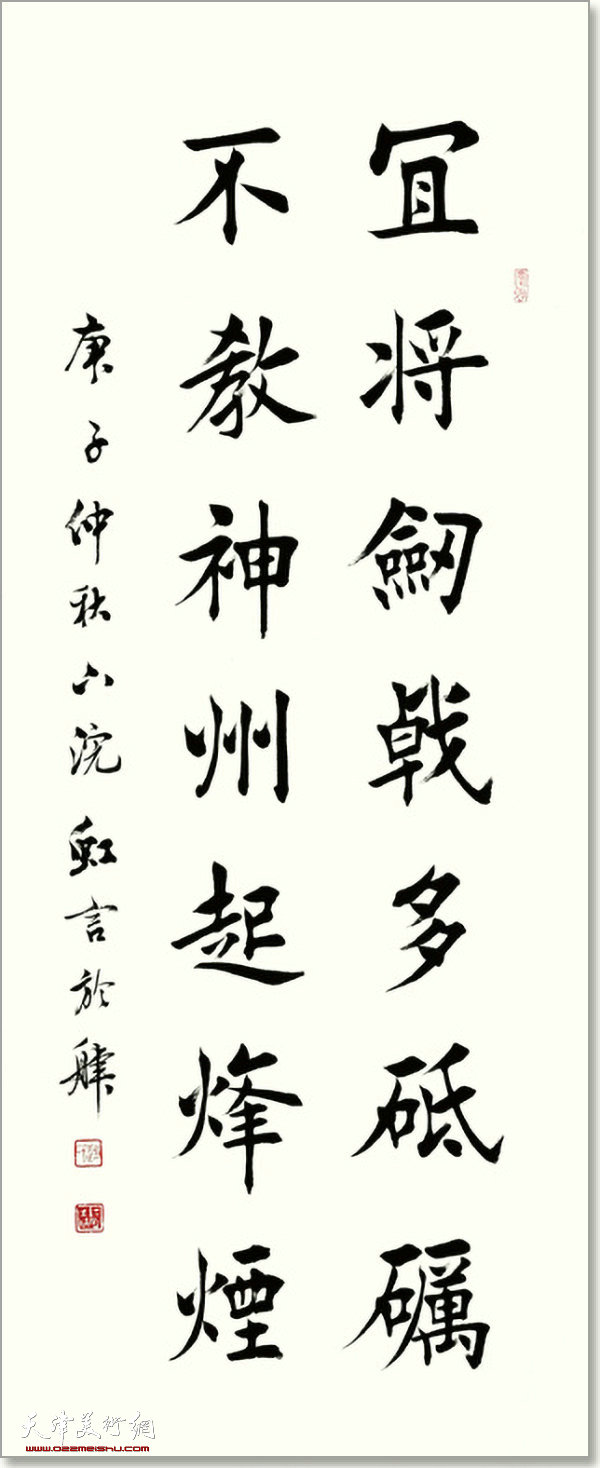 冝将劒戟多砥礪
不教神州起烽煙
庚子仲秋下浣虹言於
天津美術網
www.022meishu.com